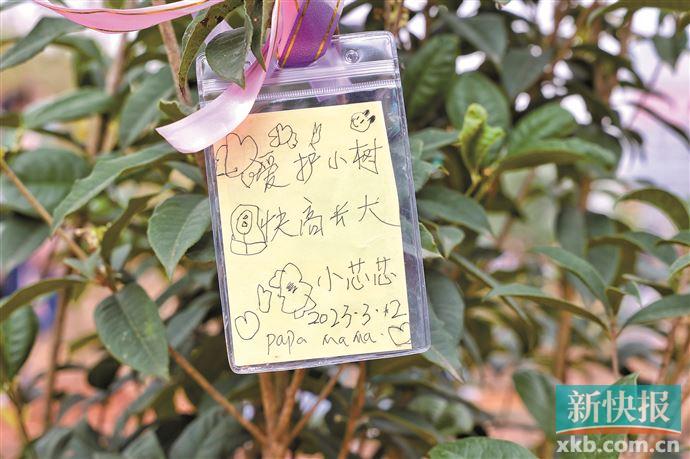 爱护小树
快高长大
小芯芯
2023·3·12
papa mama
新快报
xkb.com.cn